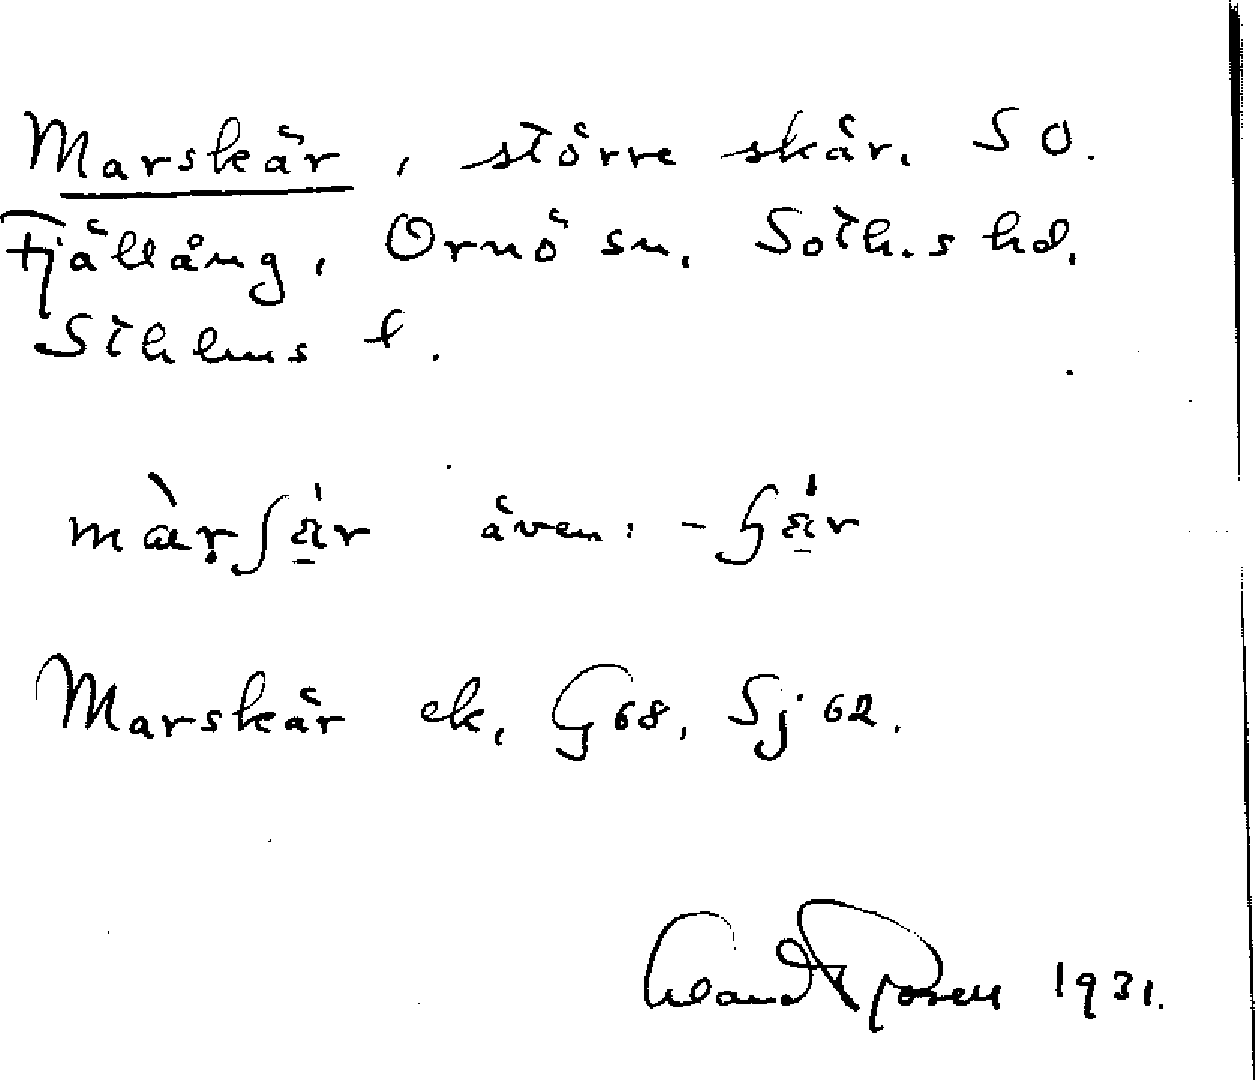 Marskär, större skär, SO.
Fjällång, Ornö sn, Soth.s hd,
Sthlms l.
màrʃä́r även: -ɧä́r
Marskär ek, G68, Sj 62.
1931.